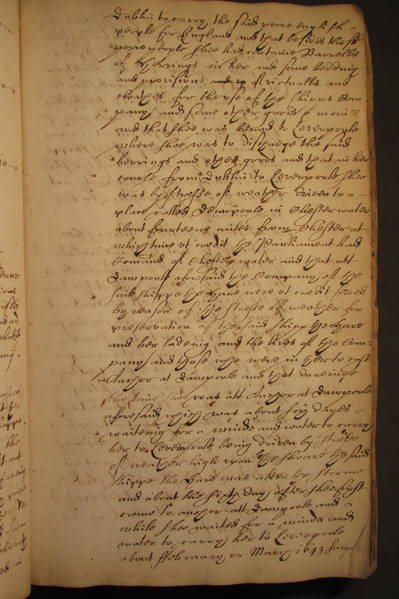 Dublin to carry the said poore english
people for England and that besides the sd
poore people shee had certaine Barrells
of Herrings in her and some bedding
and provisions and victualls and
cloathes for the use of the shipps Com
pany and some other goods &
and that shee was bound to Leverpoole
where shee was to discharge the said
herrings and other goods and that in her
course from Dublin to Leverpoole shee
was by stresse of weather driven to a
place called Dawpoole in Chester water
about fourteene miles from Chester at
which time the Parliament had
Comand of Chester water and that att
Dawpoole aforesaid the Company of the
said shippe the Hare were forced
by reason of the stresse of weather for
preservation of the said shipp the Hare
and her ladeing and the lives of the Com
pany and those who were in her to cast
Anchor at Dawpoole and that dureinge
the time shee was att Anchor at Dawpoole
aforesaid which was about six dayes
waiteing for a winde and water to carry
her to Leverpoole being driven by stresse
of weather high upon the the said
shippe the Hare
and about the sixth day after shee first
came to anchor att Dawpoole and
while shee waited for a winde and
water to carry her to Leverpoole
about February or March 1643